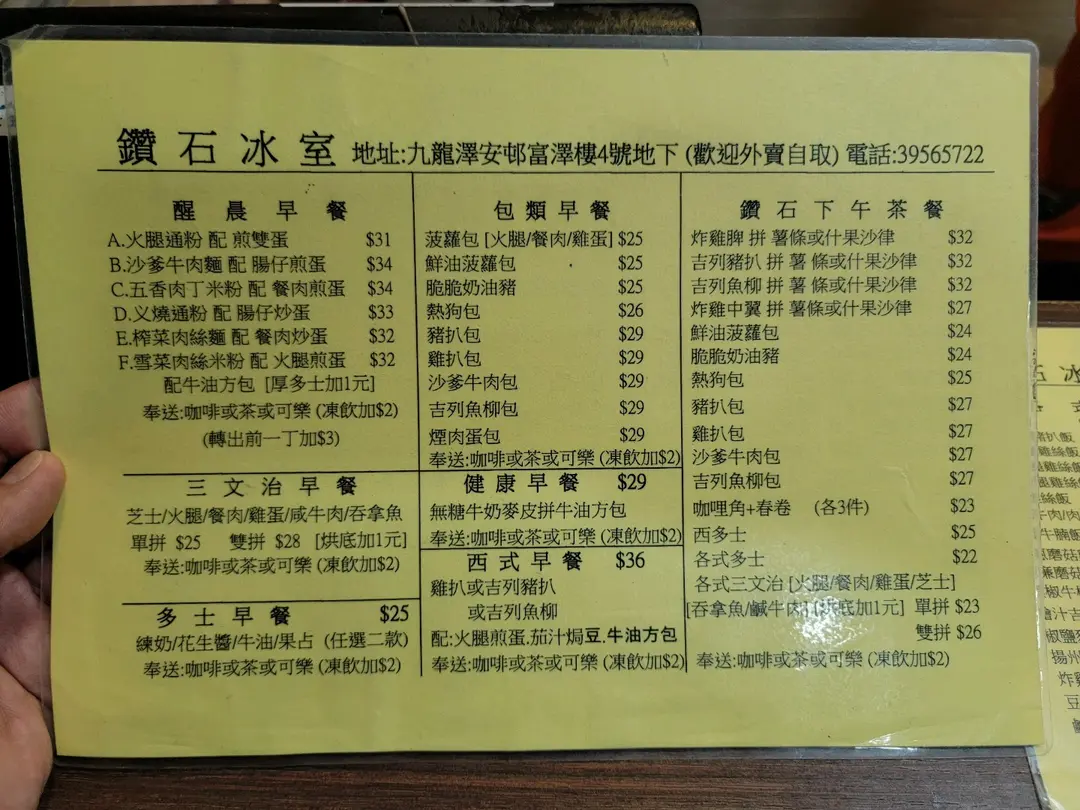 鑽石冰室 地址:九龍澤安邨富澤樓4號地下 (歡迎外賣自取) 電話:39565722
醒晨早餐
A.火腿通粉 配 煎雙蛋 $31
B.沙爹牛肉麵 配 腸仔煎蛋 $34
C.五香肉丁米粉 配 餐肉煎蛋 $34
D.义燒通粉 配 腸仔炒蛋 $33
E.榨菜肉絲麵 配 餐肉炒蛋 $32
F.雪菜肉絲米粉 配 火腿煎蛋 $32
配牛油方包 [厚多士加1元]
奉送:咖啡或茶或可樂 (凍飲加$2)
(轉出前一丁加$3)
三文治早餐
芝士/火腿/餐肉/雞蛋/咸牛肉/吞拿魚
單拼 $25 雙拼 $28 [烘底加1元]
奉送:咖啡或茶或可樂 (凍飲加$2)
多士早餐 $25
練奶/花生醬/牛油/果占 (任選二款)
奉送:咖啡或茶或可樂 (凍飲加$2)
包類早餐
菠蘿包 [火腿/餐肉/雞蛋] $25
鮮油菠蘿包 $25
脆脆奶油豬 $25
熱狗包 $26
豬扒包 $29
雞扒包 $29
沙爹牛肉包 $29
吉列魚柳包 $29
煙肉蛋包 $29
奉送:咖啡或茶或可樂 (凍飲加$2)
健康早餐 $29
無糖牛奶麥皮拼牛油方包
奉送:咖啡或茶或可樂 (凍飲加$2)
西式早餐 $36
雞扒或吉列豬扒
或吉列魚柳
配:火腿煎蛋.茄汁焗豆.牛油方包
奉送:咖啡或茶或可樂 (凍飲加$2)
鑽石下午茶餐
炸雞脾 拼 薯條或什果沙律 $32
吉列豬扒 拼 薯條或什果沙律 $32
吉列魚柳 拼 薯條或什果沙律 $32
炸雞中翼 拼 薯條或什果沙律 $27
鮮油菠蘿包 $24
脆脆奶油豬 $24
熱狗包 $25
豬扒包 $27
雞扒包 $27
沙爹牛肉包 $27
吉列魚柳包 $27
咖哩角+春卷 (各3件) $23
西多士 $25
各式多士 $22
各式三文治 [火腿/餐肉/雞蛋/芝士]
[吞拿魚/鹹牛肉] [烘底加1元] 單拼 $23
雙拼 $26
奉送:咖啡或茶或可樂 (凍飲加$2)